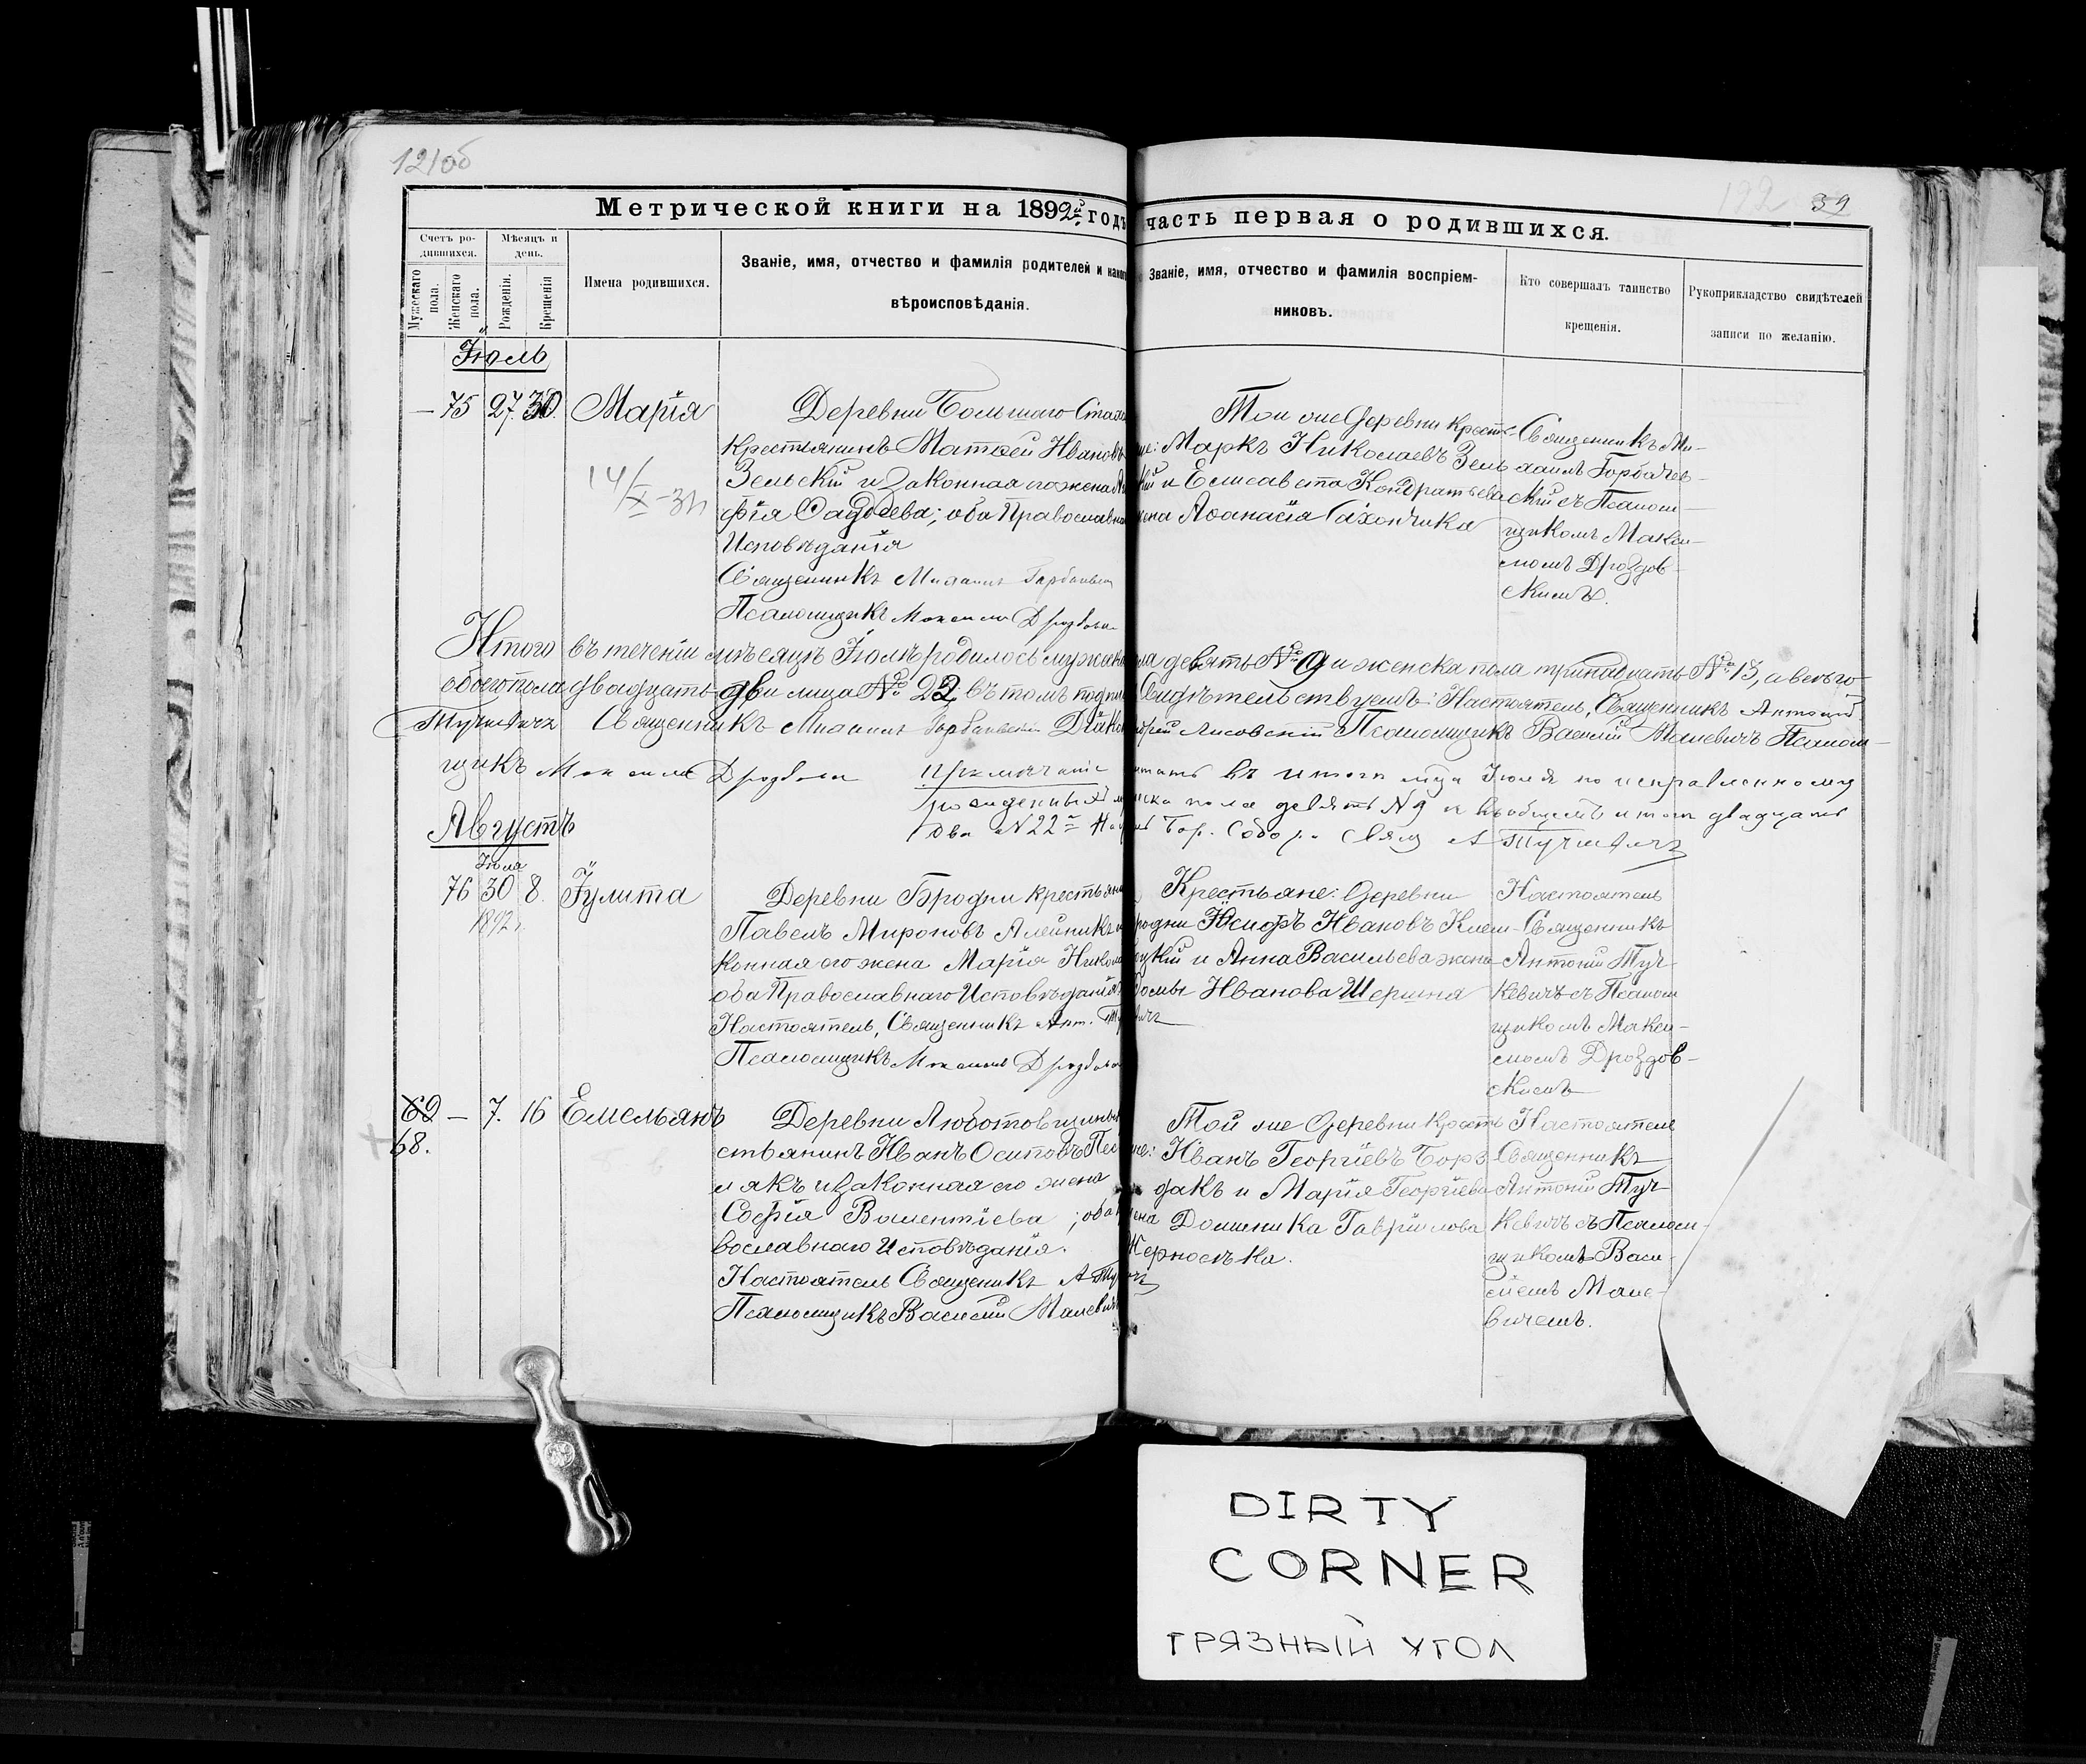 12106
122 39
Метрической книги на 1892й годъ часть первая о родившихся.
Счетъ родившихся.
Мужескаго пола.
Женскаго пола.
Мѣсяцъ и день.
Рожденія.
Крещенія
Имена родившихся.
Званіе, имя, отчество и фамилія родителей и какого
вѣроисповѣданія.
Званіе, имя, отчество и фамилія воспріем-
никовъ.
Кто совершалъ таинство
крещенія.
Рукоприкладство свидѣтелей
записи по желанію.
Іюль
— 75 27. 30. Марія
14/X-3
Деревни Большаго
Крестьянинъ Матѳей Ивановъ
Зельскій и законная его жена
фія Ѳадѣева; оба Православна
Исповѣданія
Священникъ Михаилъ Горбачевск
Псаломщикъ Максимъ Дроздовск
Той же деревни Крестья-
не: Маркъ Николаевъ Зель
кій и Елисавета Кондратьева
жена Аѳанасія
Священникъ Ми-
хаилъ Горбачев-
скій съ Псалом-
щикомъ Макси-
момъ Дроздов-
скимъ.
Итого въ теченіи мѣсяца Іюля родилось мужска пола девять № 9 и женска пола тринадцать № 13, а всего
обоего пола двадцать два лица № 22; въ томъ подпи Свидѣтельствуемъ: Настоятель, Священникъ Антоній
Тучкевичъ Священникъ Михаилъ Горбачевскій Діаконъ Лисовскій Псаломщикъ Василій Малевичъ Псалом-
щикъ Максимъ Дроздовск
Примѣчаніе читать въ итогѣ м-ца Іюля по исправленному
рожденныхъ мужска пола девять N 9 и въ общемъ итогѣ двадцать
два N 22 Бор. Собора Свящ А Тучкевичъ
Августъ
Іюля
76 30 8. Іулита
1892
Деревни Бродни крестьянинъ
Павелъ Мироновъ Алейникъ и
конная его жена Марія Никола
оба Православнаго Исповѣданія
Настоятель, Священникъ Ант. Тучкевичъ
Псаломщикъ Максимъ Дроздовск
Крестьяне: деревни
Бродни Іосифъ Ивановъ
и Анна Васильева жена
Ѳомы Иванова
Настоятель
Священникъ
Антоній Туч-
кевичъ съ Псалом
щикомъ Макси-
момъ Дроздов-
скимъ
69 — 7. 16 Емельянъ
68.
Деревни Любатовщины
стьянинъ Иванъ Осиповъ
и законная его жена
Софія Валентіева; оба
вославнаго Исповѣданія.
Настоятель Священникъ А Тучкевичъ
Псаломщикъ Василій Малевичъ
Той же деревни Кресть
не: Иванъ Георгіевъ Борз
дакъ и Марія Георгіева
жена Доминика Гавріилова
Черносѣка.
Настоятель
Священникъ
Антоній Туч-
кевичъ съ Псалом-
щикомъ Васи-
ліемъ Мале-
вичемъ.
DIRTY
CORNER
ГРЯЗНЫЙ УГОЛ